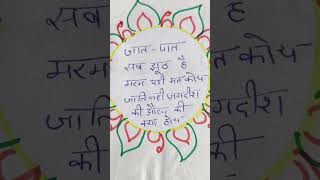 जात - पात
सब झूठ है
मरम पडो मत कोय
जाति नही जगदीश
की और की
क्या होय